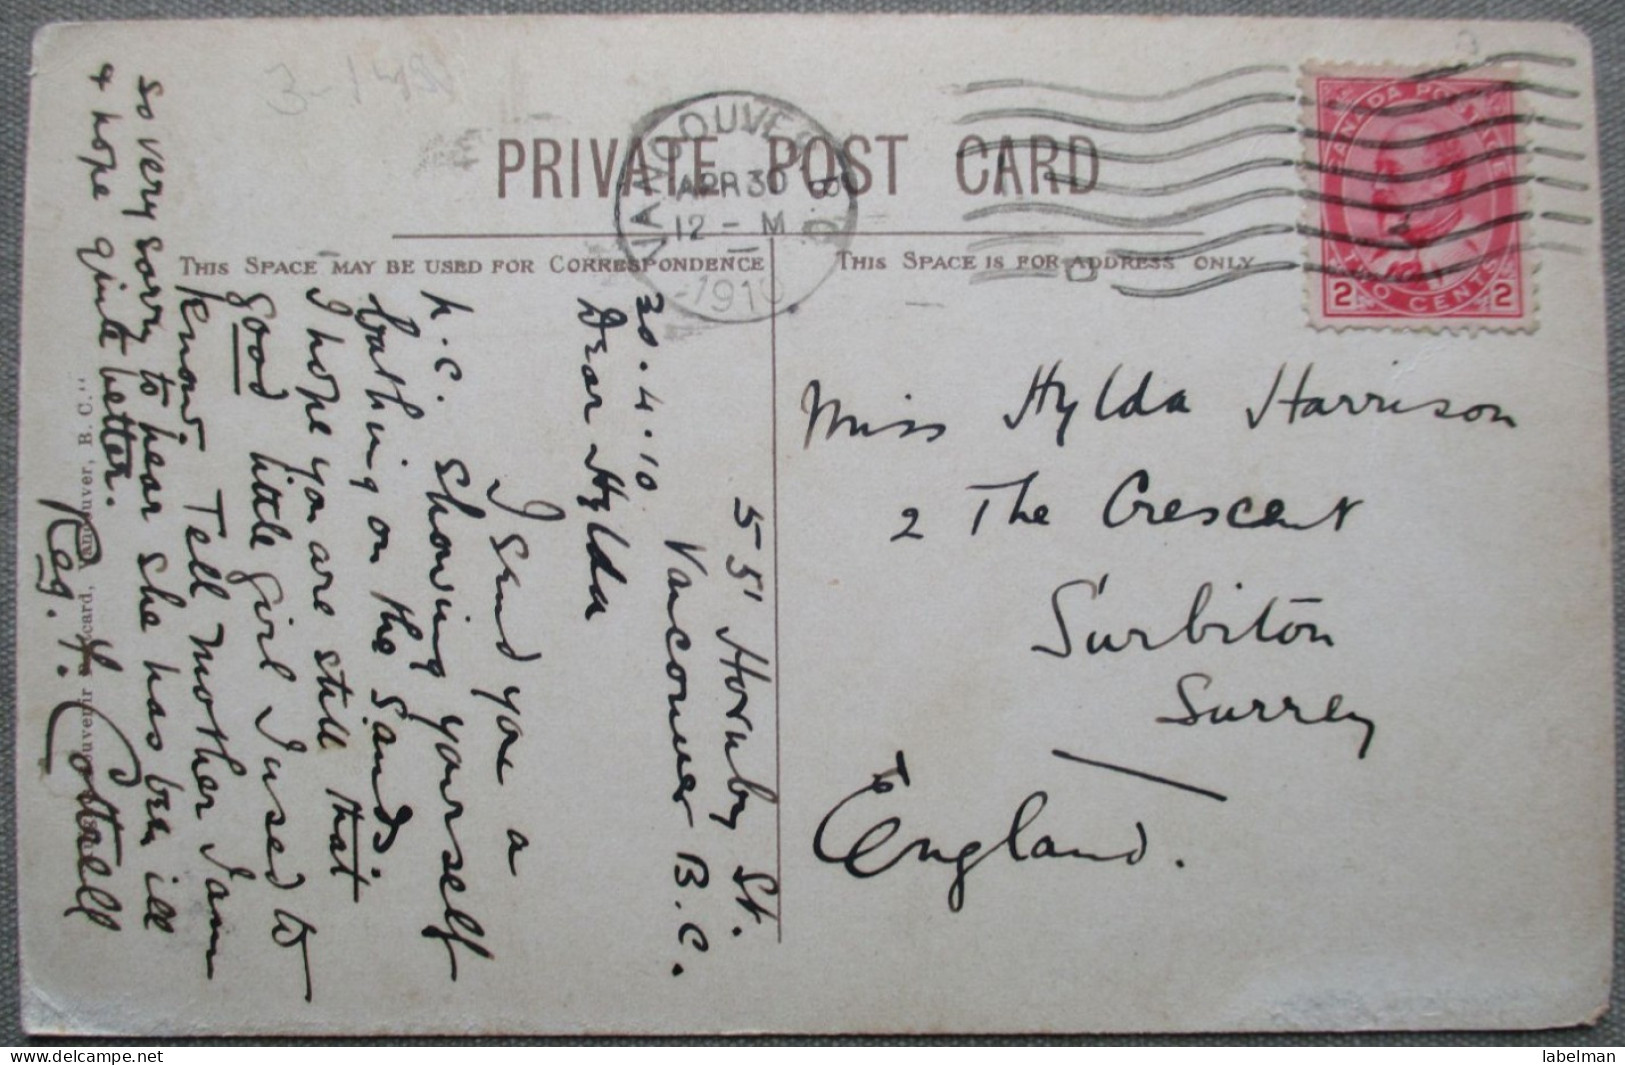 PRIVATE POST CARD
VANCOUVER
APR 30
12 - M
1910
CANADA POSTAGE
2 TWO CENTS 2
THIS SPACE MAY BE USED FOR CORRESPONDENCE
THIS SPACE IS FOR ADDRESS ONLY
551 Hornby St.
Vancouver B.C.
30.4.10
Dear Hylda
I send you a
p.c. showing yourself
bathing on the sands.
I hope you are still that
good little girl I used to
know. Tell mother I am
so very sorry to hear she has been ill
& hope quite better.
Reg. H. Cottrell
Miss Hylda Harrison
2 The Crescent
Surbiton
Surrey
England.
labelman
delcampe.net